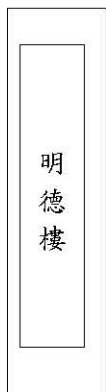 明德樓